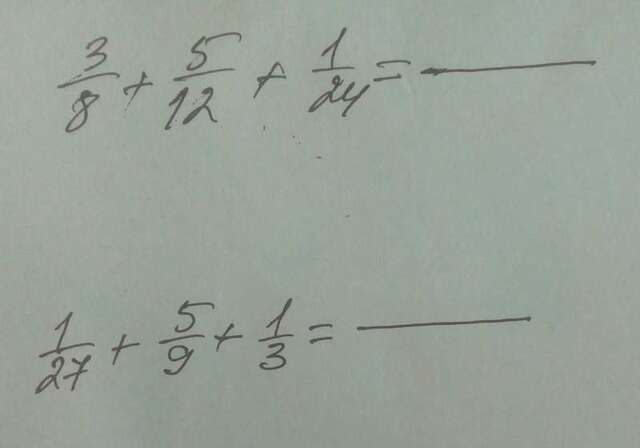 3/8 + 5/12 + 1/24 = ____
1/27 + 5/9 + 1/3 = ____